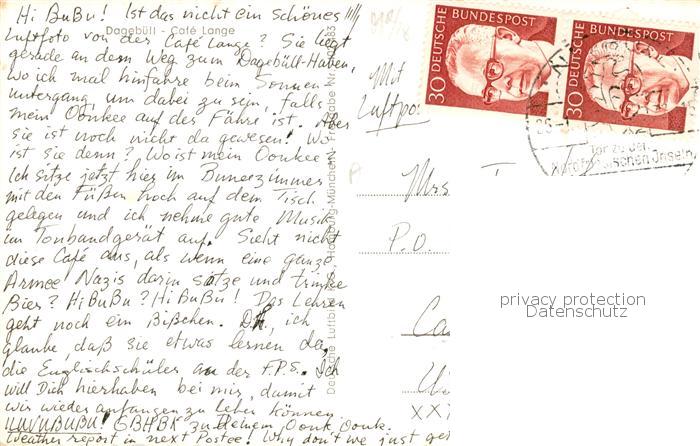 Hi BuBu! Ist das nicht ein schönes
Luftfoto von der Café Lange? Sie liegt
Dagebüll - Café Lange
gerade an dem Weg zum Dagebüll-Hafen,
wo ich mal hinfahre beim Sonnen-
untergang, um dabei zu sein, falls
mein Oonkee auf der Fähre ist. Aber
sie ist noch nicht da gewesen! Wo
ist sie denn? Wo ist mein Oonkee?
Ich sitze jetzt hier im Bunerzimmer
mit den Füßen hoch auf dem Tisch
gelegen und ich nehme gute Musik
im Tonbandgerät auf. Sieht nicht
diese Café aus, als wenn eine ganze
Armee Nazis darin sitze und trinke
Bier? Hi BuBu? Hi BuBu! Das Lehren
geht noch ein Bißchen. ich
glaube, daß sie etwas lernen da,
die Englischschüler an der F.P.S. Ich
will Dich hierhaben bei mir, damit
wir wieder anfangen zu leben können
UUVUBUBU! GBHBK zu Deinem Oonk Oonk.
Weather report in next Postce. Why don't we just get
Deutsche Luftbild Freigabe Nr.
Mit
Luftpo
30 DEUTSCHE BUNDESPOST
30 DEUTSCHE BUNDESPOST
Tor zu den
Nordfriesischen Inseln
Mrs
P.O.
Ca
U
XX
privacy protection
Datenschutz